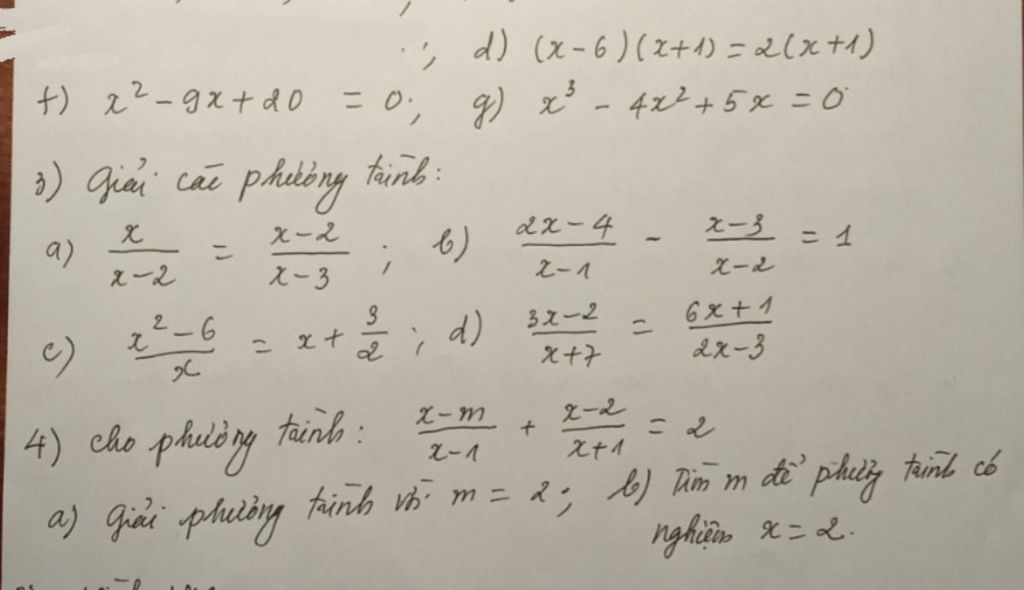 ; d) (x-6)(x+1) = 2(x+1)
f) x² - 9x + 20 = 0; g) x³ - 4x² + 5x = 0
3) Giải các phương trình:
a) x/(x-2) = (x-2)/(x-3) ; b) (2x-4)/(x-1) - (x-3)/(x-2) = 1
c) (x²-6)/x = x + 3/2 ; d) (3x-2)/(x+7) = (6x+1)/(2x-3)
4) cho phương trình: (x-m)/(x-1) + (x-2)/(x+1) = 2
a) Giải phương trình với m = 2; b) Tìm m để phương trình có
nghiệm x = 2.